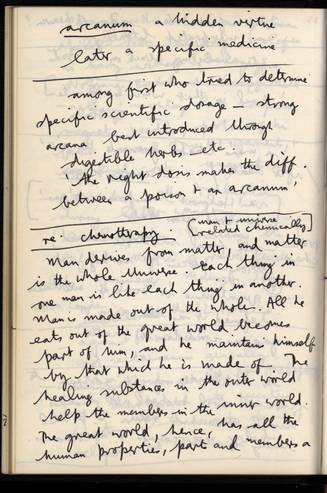 arcanum a hidden virtue
later a specific medicine
among first who tried to determine
specific scientific dosage – strong
arcana best introduced through
digestible herbs etc.
'the right dosis makes the diff.
between a poison & an arcanum'
re. chemotherapy. [man & universe
related chemically]
Man derives from matter, and matter
is the whole Universe. Each thing in
one man is like each thing in another.
Man is made out of the whole. All he
eats out of the great world becomes
part of him, and he maintains himself
by that which he is made of. The
healing substances in the outer world
help the members in the inner world.
The great world, hence, has all the
human properties, parts and members a